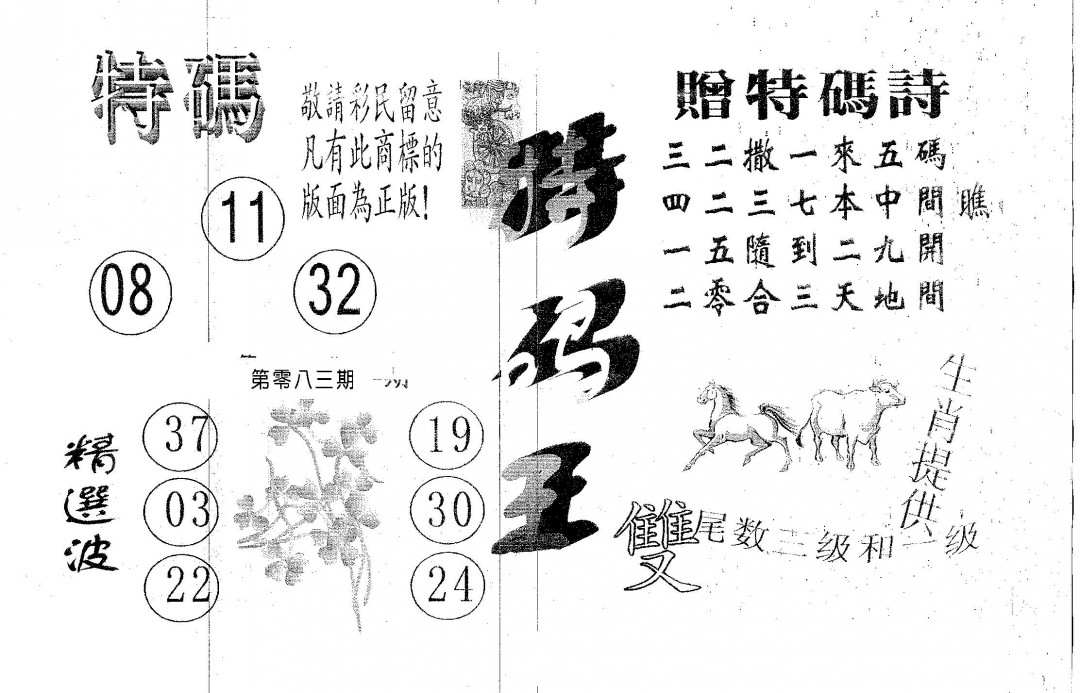 特碼
敬請彩民留意
凡有此商標的
版面為正版!
11
08
32
第零八三期
精選波
37
03
22
19
30
24
特码王
贈特碼詩
三二撒一來五碼
四二三七本中間瞧
一五隨到二九開
二零合三天地間
生肖提供
雙尾数二级和一级